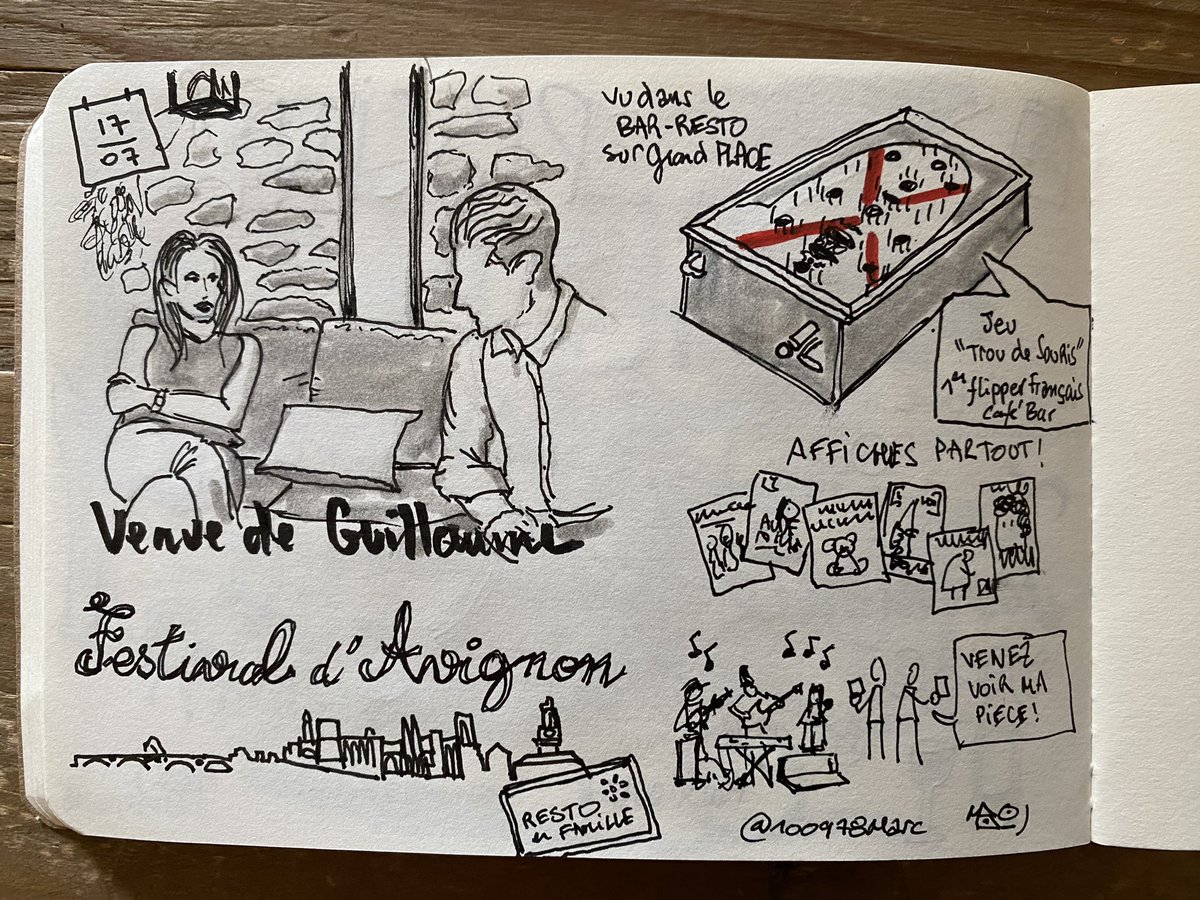 17
07
Venue de Guillaume
Festival d'Avignon
RESTO
en FAMILLE
vu dans le
BAR-RESTO
sur grand PLACE
Jeu
"Trou de Souris"
1er flipper français
Café Bar
AFFICHES PARTOUT!
VENEZ
VOIR MA
PIECE!
@100978Marc